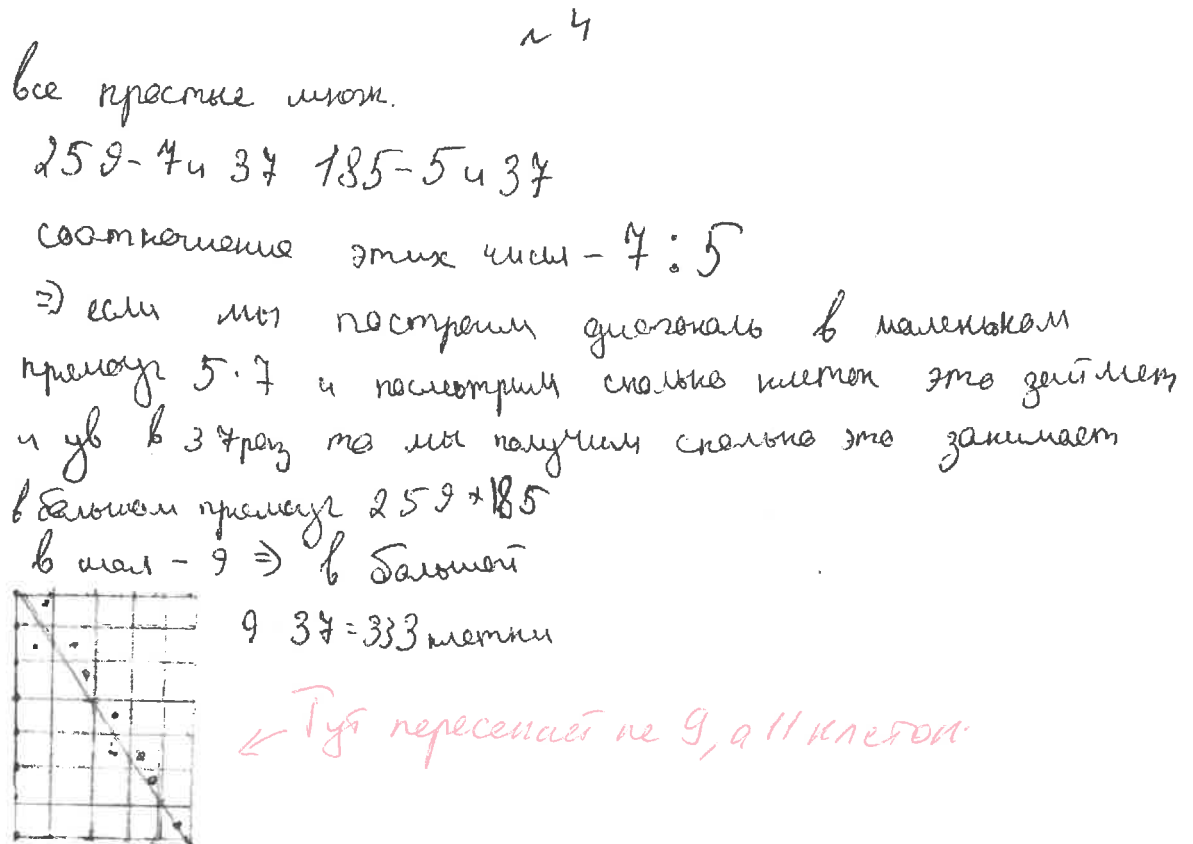 № 4
все простые множ.
259 - 7 и 37 185 - 5 и 37
соотношение этих чисел - 7 : 5
⇒ если мы построим диагональ в маленьком
прямоуг 5·7 и посмотрим сколько клеток это займет
и ув в 37 раз то мы получим сколько это занимает
в большом прямоуг 259 * 185
в мал - 9 ⇒ в большой
9 37 = 333 клетки
← Тут пересекает не 9, а 11 клеток.